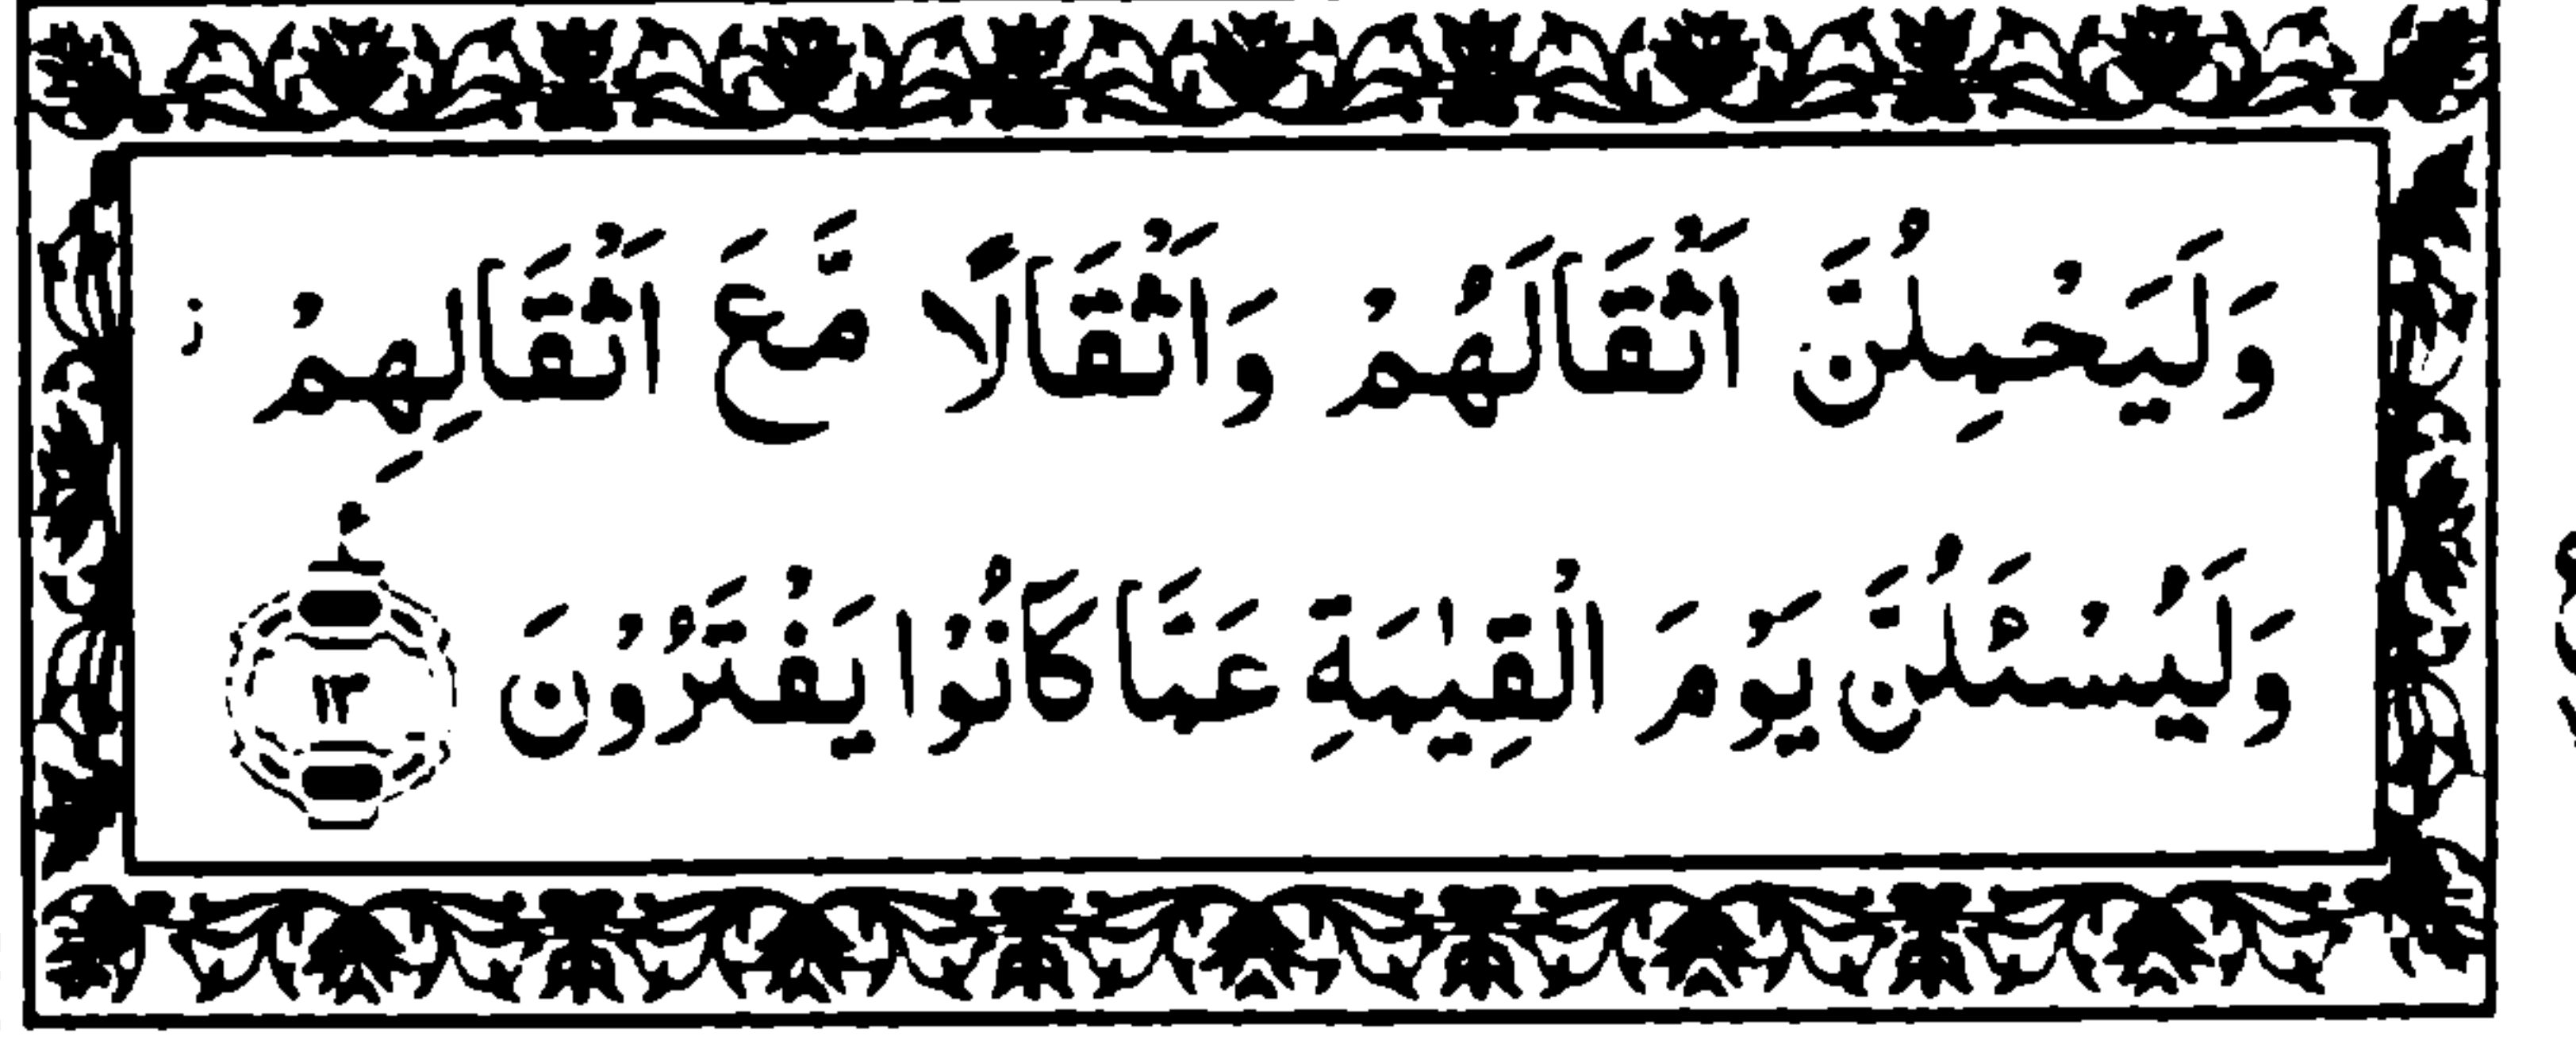 وَلَيَحْمِلُنَّ اَثْقَالَهُمْ وَاَثْقَالًا مَّعَ اَثْقَالِهِمْ ز
وَلَيُسْئَلُنَّ يَوْمَ الْقِيٰمَةِ عَمَّا كَانُوْا يَفْتَرُوْنَ ١٣